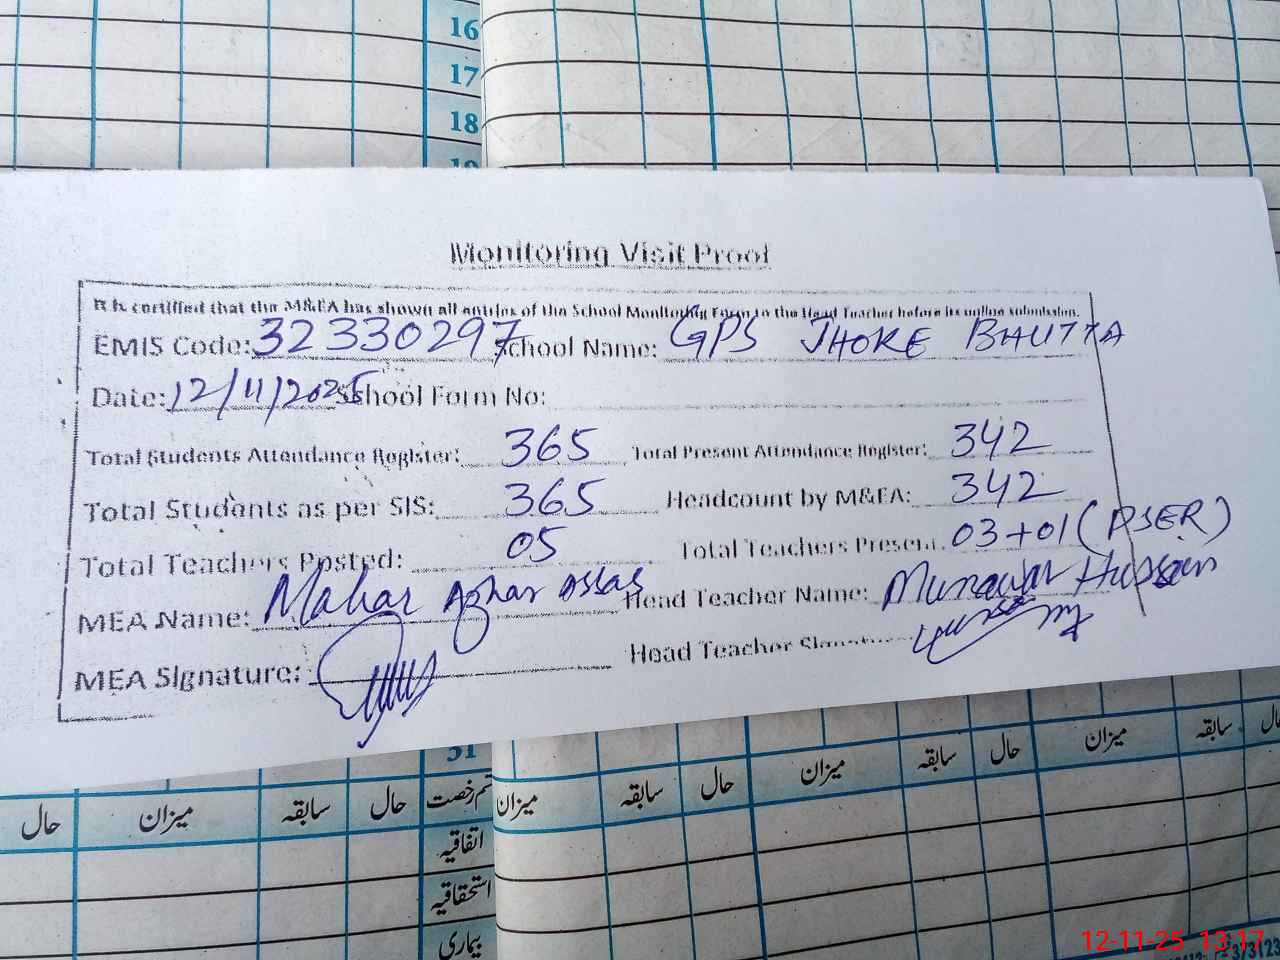 16
17
18
19
Monitoring Visit Proof
It is certified that the M&EA has shown all entries of the School Monitoring Form to the Head Teacher before its online submission.
EMIS Code: 32330297 School Name: GPS JHOKE BHUTTA
Date: 12/11/2025 School Form No:
Total Students Attendance Register: 365 Total Present Attendance Register: 342
Total Students as per SIS: 365 Headcount by M&EA: 342
Total Teachers Posted: 05 Total Teachers Present. 03+01 (PSER)
MEA Name: Mahar Azhar Abbas Head Teacher Name: Munawar Hussain
MEA Signature: Head Teacher Signature
31
حال میزان سابقہ حال قسم رخصت میزان سابقہ حال میزان سابقہ حال میزان سابقہ حال
اتفاقیہ
استحقاقیہ
بیماری
12-11-25 13:17